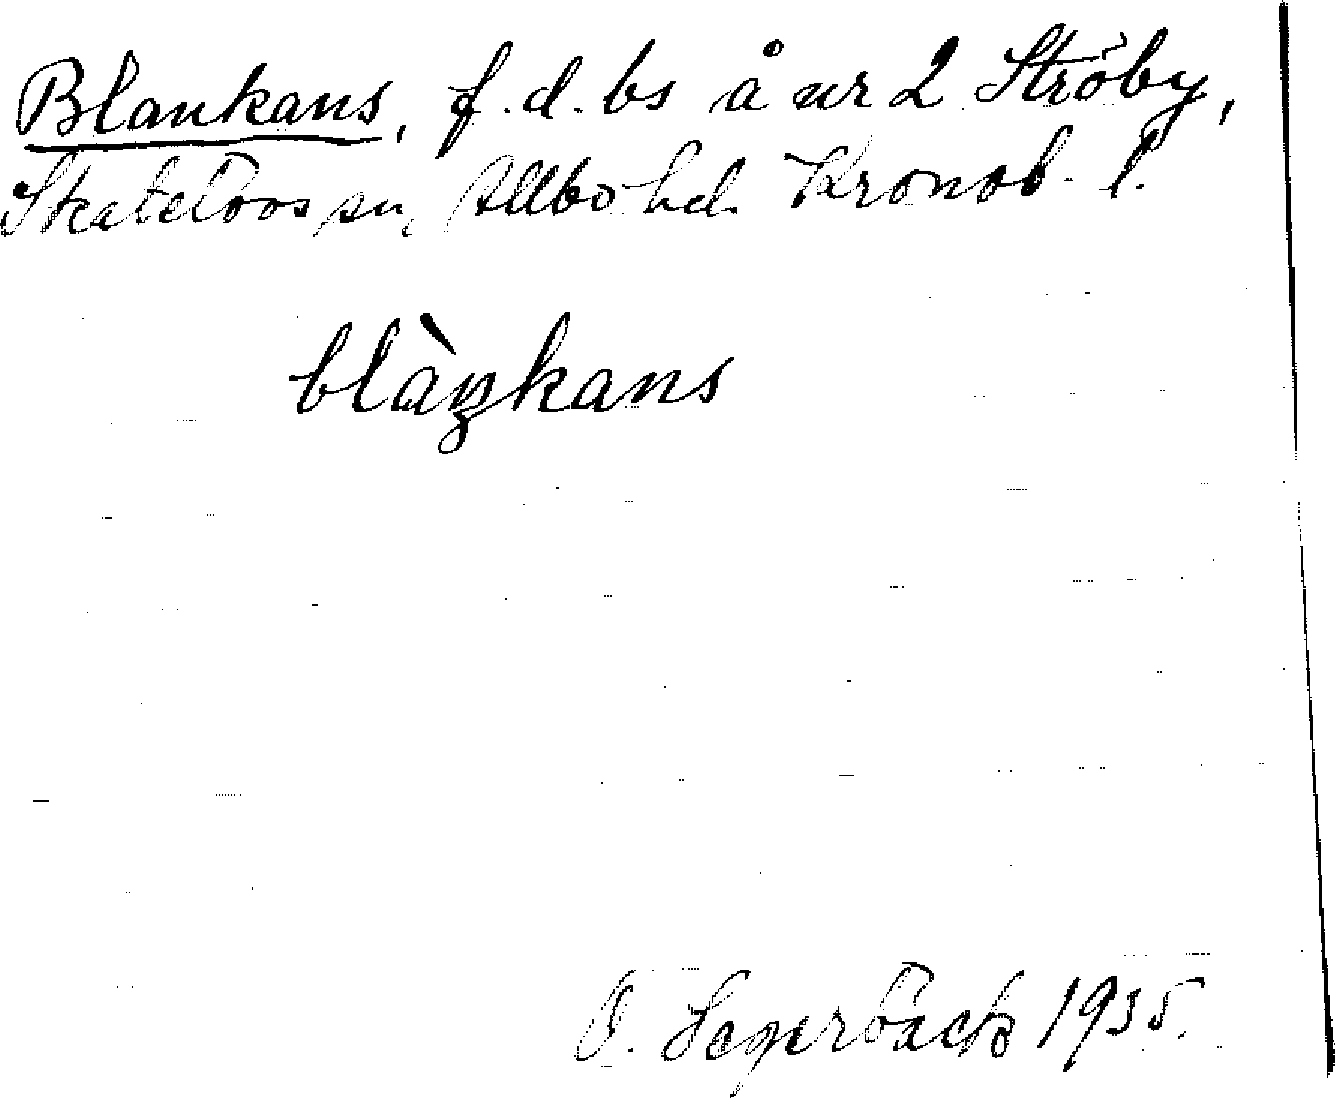 Blankans, f.d. bs å nr 2 Ströby,
Skatelövs sn, Allbo hd. Kronob. l.
blàŋkans
O. Segerbäck 1935.